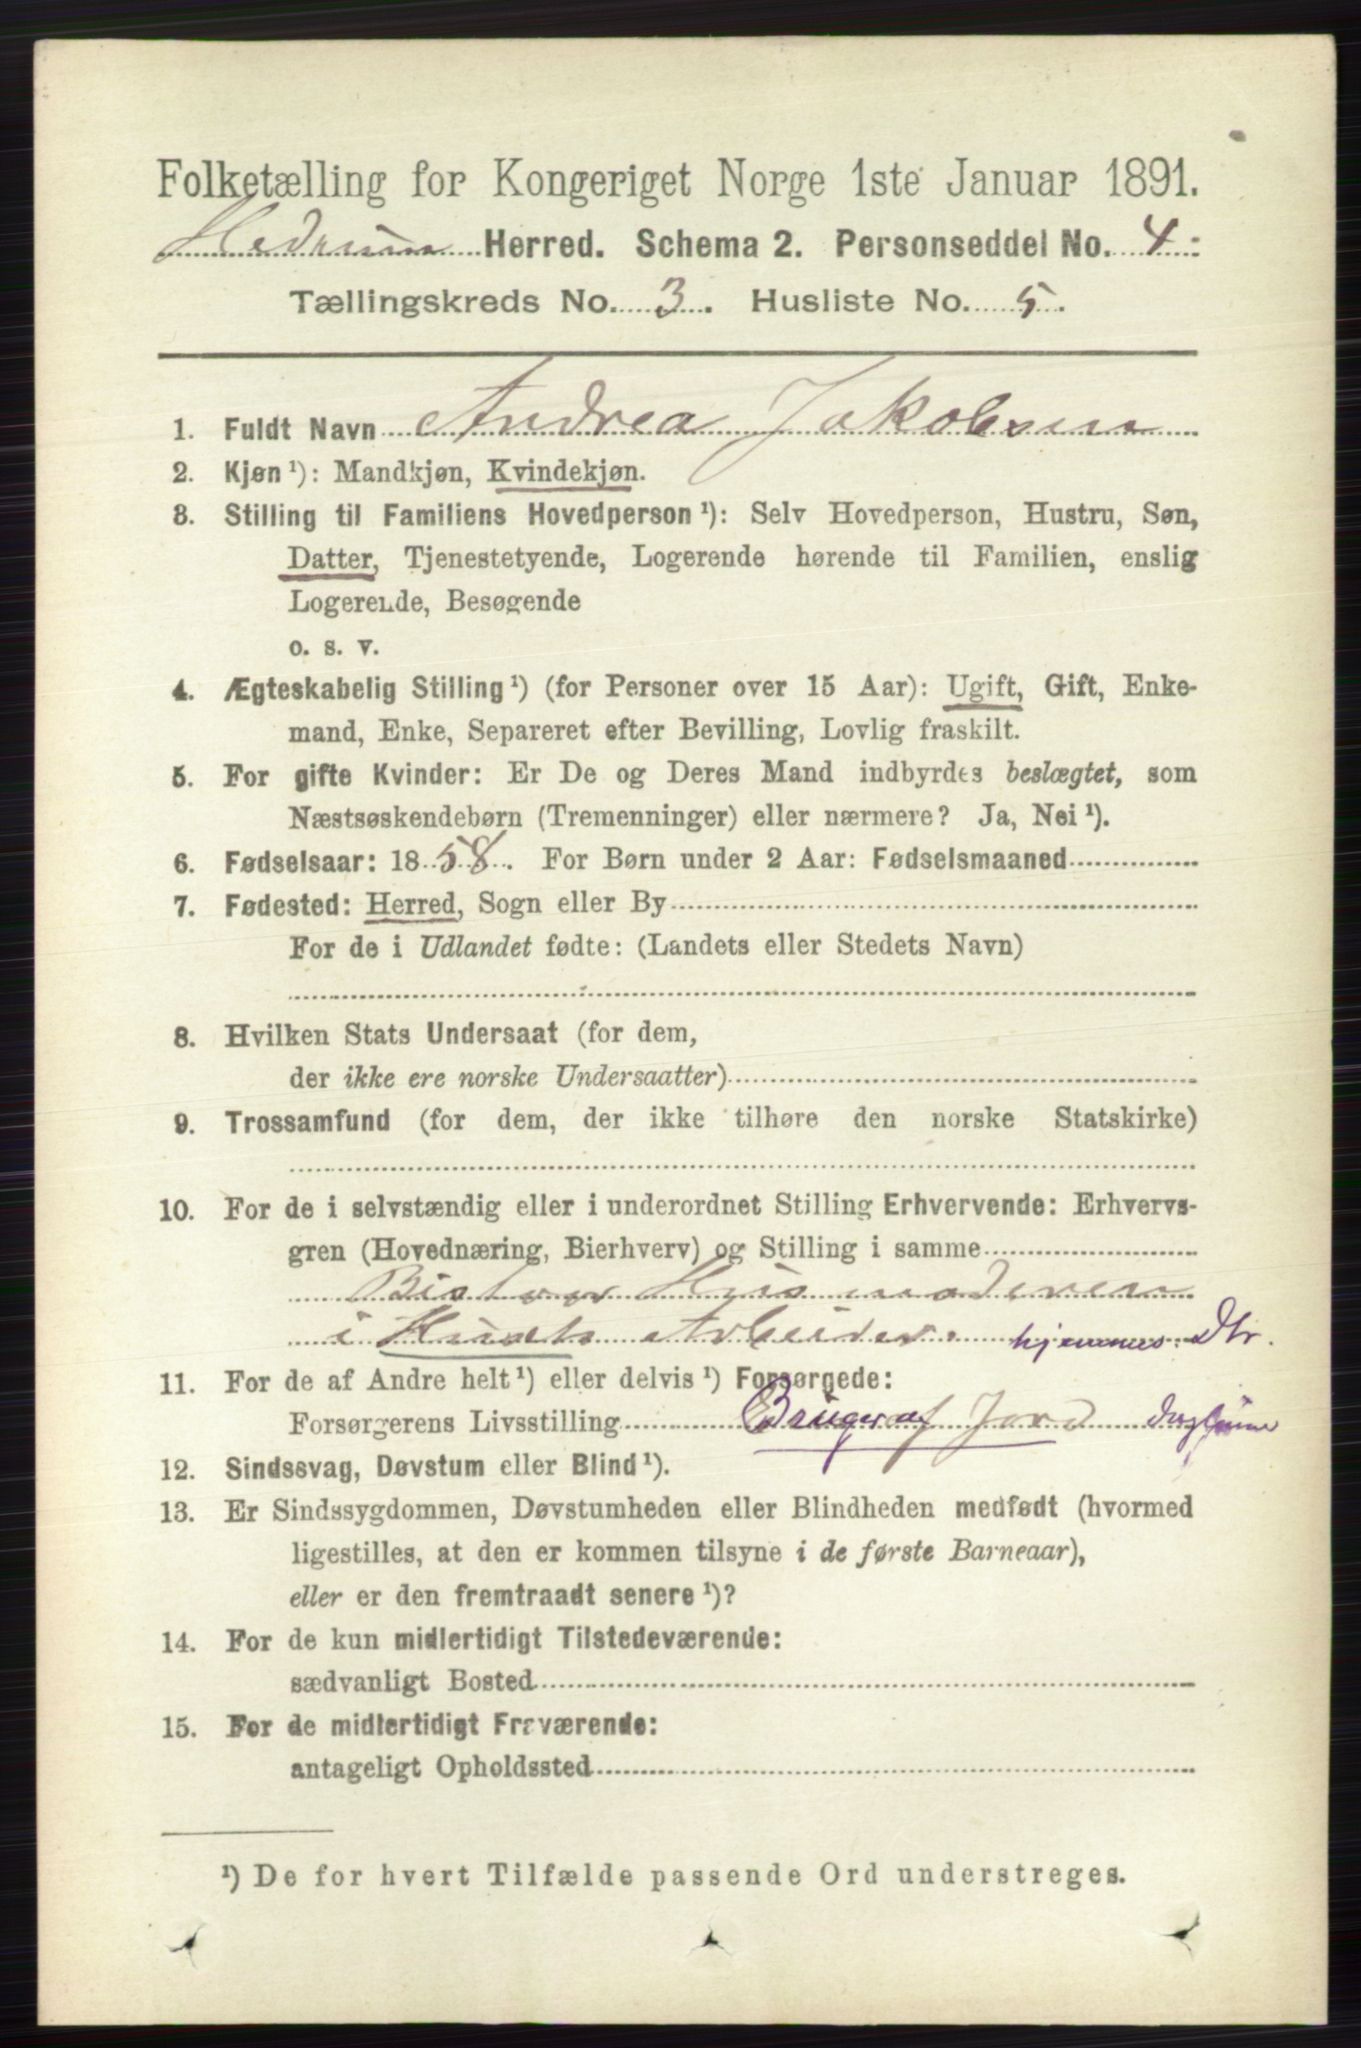 Folketælling for Kongeriget Norge 1ste Januar 1891.
Hedrum Herred. Schema 2. Personseddel No. 4:
Tællingskreds No. 3. Husliste No. 5.
1. Fuldt Navn Andrea Jakobsen
2. Kjøn ¹): Mandkjøn, Kvindekjøn.
3. Stilling til Familiens Hovedperson ¹): Selv Hovedperson, Hustru, Søn,
Datter, Tjenestetyende, Logerende hørende til Familien, enslig
Logerende, Besøgende
o. s. v.
4. Ægteskabelig Stilling ¹) (for Personer over 15 Aar): Ugift, Gift, Enke-
mand, Enke, Separeret efter Bevilling, Lovlig fraskilt.
5. For gifte Kvinder: Er De og Deres Mand indbyrdes beslægtet, som
Næstsøskendebørn (Tremenninger) eller nærmere? Ja, Nei ¹).
6. Fødselsaar: 1858. For Børn under 2 Aar: Fødselsmaaned
7. Fødested: Herred, Sogn eller By
For de i Udlandet fødte: (Landets eller Stedets Navn)
8. Hvilken Stats Undersaat (for dem,
der ikke ere norske Undersaatter)
9. Trossamfund (for dem, der ikke tilhøre den norske Statskirke)
10. For de i selvstændig eller i underordnet Stilling Erhvervende: Erhvervs-
gren (Hovednæring, Bierhverv) og Stilling i samme
Bistaar Husmoderen
i Husets Arbeider. hjemmev. Dtr.
11. For de af Andre helt ¹) eller delvis ¹) Forsørgede:
Forsørgerens Livsstilling Bruger af Jord
12. Sindssvag, Døvstum eller Blind ¹).
13. Er Sindssygdommen, Døvstumheden eller Blindheden medfødt (hvormed
ligestilles, at den er kommen tilsyne i de første Barneaar),
eller er den fremtraadt senere ¹)?
14. For de kun midlertidigt Tilstedeværende:
sædvanligt Bosted
15. For de midlertidigt Fraværende:
antageligt Opholdssted
¹) De for hvert Tilfælde passende Ord understreges.